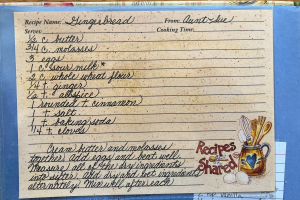 Recipe Name: Gingerbread From: Aunt Sue
Serves: Cooking Time:
1/2 c. butter
3/4 c. molasses
3 eggs
1 c. sour milk *
2 c. whole wheat flour
1/4 t. ginger
1/2 t. allspice
1 rounded t. cinnamon
1 t. salt
1 t. baking soda
1/4 t. cloves
Cream butter and molasses
together. Add eggs and beat well.
Measure all of the dry ingredients
into sifter. Add dry and wet ingredients
alternately. Mix well after each
Recipes
Shared